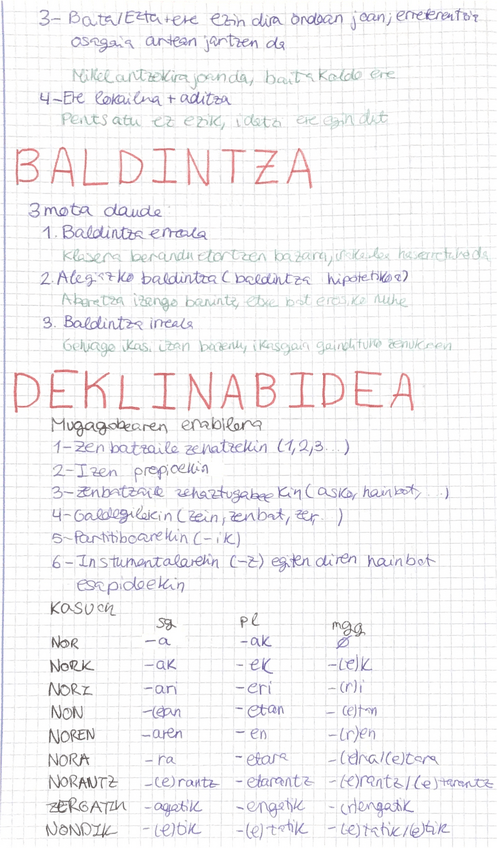 3- Bata/Ezta+ere ezin dira ondoan joan; erreferentzia
osagaia artean jartzen da
Nikel antzokira joan da, baita Kalda ere
4-Ere lokailua + aditza
Pentsatu ez ezik, idatzi ere egin dut
BALDINTZA
3 mota daude
1. Baldintza erreala
Klasera berandu etortzen bazara, irakaslea haserretuko da
2. Alegiazko baldintza (baldintza hipotetikoa)
Aberatsa izango banintz, etxe bat erosiko nuke
3. Baldintza irreala
Gehiago ikasi izan bazenu, ikasgaia gaindituko zenukeen
DEKLINABIDEA
Mugagabearen erabilera
1-Zenbatzaile zehatzekin (1,2,3...)
2-Izen propioekin
3-Zenbatzaile zehaztugabeekin (asko, hainbat, ...)
4-Galdegilekin (zein, zenbat, zer...)
5-Partitiboarekin (-ik)
6-Instumentalarekin (-z) egiten diren hainbat
esapideekin
Kasuak
sg pl mgg
NOR -a -ak Ø
NORK -ak -ek -(e)k
NORI -ari -eri -(r)i
NON -(e)an -etan -(e)tan
NOREN -aren -en -(r)en
NORA -ra -etara -(e)ra/(e)tara
NORANTZ -(e)rantz -etarantz -(e)rantz/(e)tarantz
ZERGATIK -agatik -engatik -(r)engatik
NONDIK -(e)tik -(e)tatik -(e)tatik/(e)tik